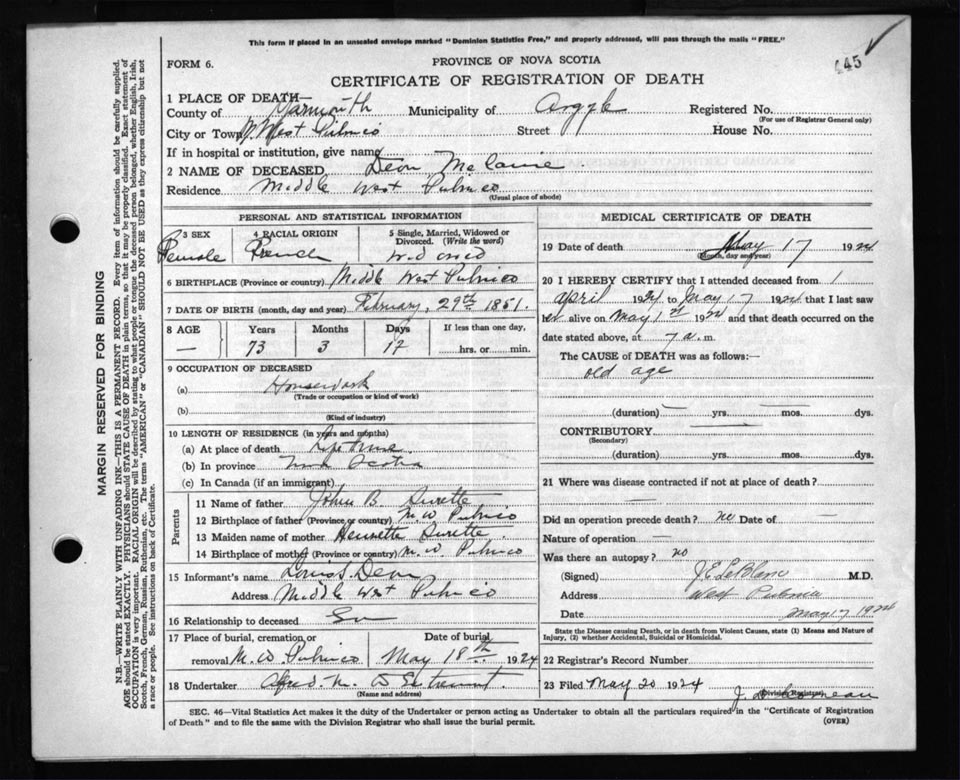 This form if placed in an unsealed envelope marked "Dominion Statistics Free," and properly addressed, will pass through the mails "FREE."
445
FORM 6.
PROVINCE OF NOVA SCOTIA
CERTIFICATE OF REGISTRATION OF DEATH
1 PLACE OF DEATH—
County of Yarmouth Municipality of Argyle Registered No.
(For use of Registrar General only)
City or Town M. West Pubnico Street House No.
If in hospital or institution, give name
2 NAME OF DECEASED Deon Melanie
Residence Middle West Pubnico
(Usual place of abode)
PERSONAL AND STATISTICAL INFORMATION
3 SEX 4 RACIAL ORIGIN 5 Single, Married, Widowed or Divorced. (Write the word)
Female French Widowed
6 BIRTHPLACE (Province or country) Middle West Pubnico
7 DATE OF BIRTH (month, day and year) February, 29th 1851.
8 AGE Years Months Days If less than one day,
— 73 3 17 hrs. or min.
9 OCCUPATION OF DECEASED
(a) Housework
(Trade or occupation or kind of work)
(b)
(Kind of industry)
10 LENGTH OF RESIDENCE (in years and months)
(a) At place of death Life time
(b) In province Nova Scotia
(c) In Canada (if an immigrant)
Parents
11 Name of father John B. Surette
12 Birthplace of father (Province or country) M. W. Pubnico
13 Maiden name of mother Henriette Surette
14 Birthplace of mother (Province or country) M. W. Pubnico
15 Informant's name Louis S. Deon
Address Middle West Pubnico
16 Relationship to deceased Son
17 Place of burial, cremation or removal M. W. Pubnico
Date of burial May 18th 1924
18 Undertaker Alfred M.
(Name and address)
MEDICAL CERTIFICATE OF DEATH
19 Date of death May 17 1924
(Month, day and year)
20 I HEREBY CERTIFY that I attended deceased from 1
April 1924 to May 17 1924 that I last saw
her alive on May 1st 1924 and that death occurred on the
date stated above, at 7 a. m.
The CAUSE of DEATH was as follows:—
old age
(duration) — yrs. — mos. dys.
CONTRIBUTORY
(Secondary)
(duration) yrs. mos. dys.
21 Where was disease contracted if not at place of death?
—
Did an operation precede death? no Date of —
Nature of operation —
Was there an autopsy? no
(Signed) J E LeBlanc M.D.
Address West Pubnico
Date May 17 1924
State the Disease causing Death, or in death from Violent Causes, state (1) Means and Nature of Injury, (2) whether Accidental, Suicidal or Homicidal.
22 Registrar's Record Number
23 Filed May 20 1924
Division Registrar
SEC. 46—Vital Statistics Act makes it the duty of the Undertaker or person acting as Undertaker to obtain all the particulars required in the "Certificate of Registration
of Death" and to file the same with the Division Registrar who shall issue the burial permit.
(OVER)
MARGIN RESERVED FOR BINDING
N.B.—WRITE PLAINLY WITH UNFADING INK—THIS IS A PERMANENT RECORD. Every item of information should be carefully supplied.
AGE should be stated EXACTLY. PHYSICIANS should STATE CAUSE OF DEATH in plain terms, so that it may be properly classified. Exact statement of
OCCUPATION is very important. RACIAL ORIGIN will be described by stating to what people or tongue the deceased person belonged, whether English, Irish,
Scotch, French, German, Russian, Ruthenian, etc. The terms "AMERICAN" or "CANADIAN" SHOULD NOT BE USED as they express citizenship but not
a race or people. See instructions on back of Certificate.